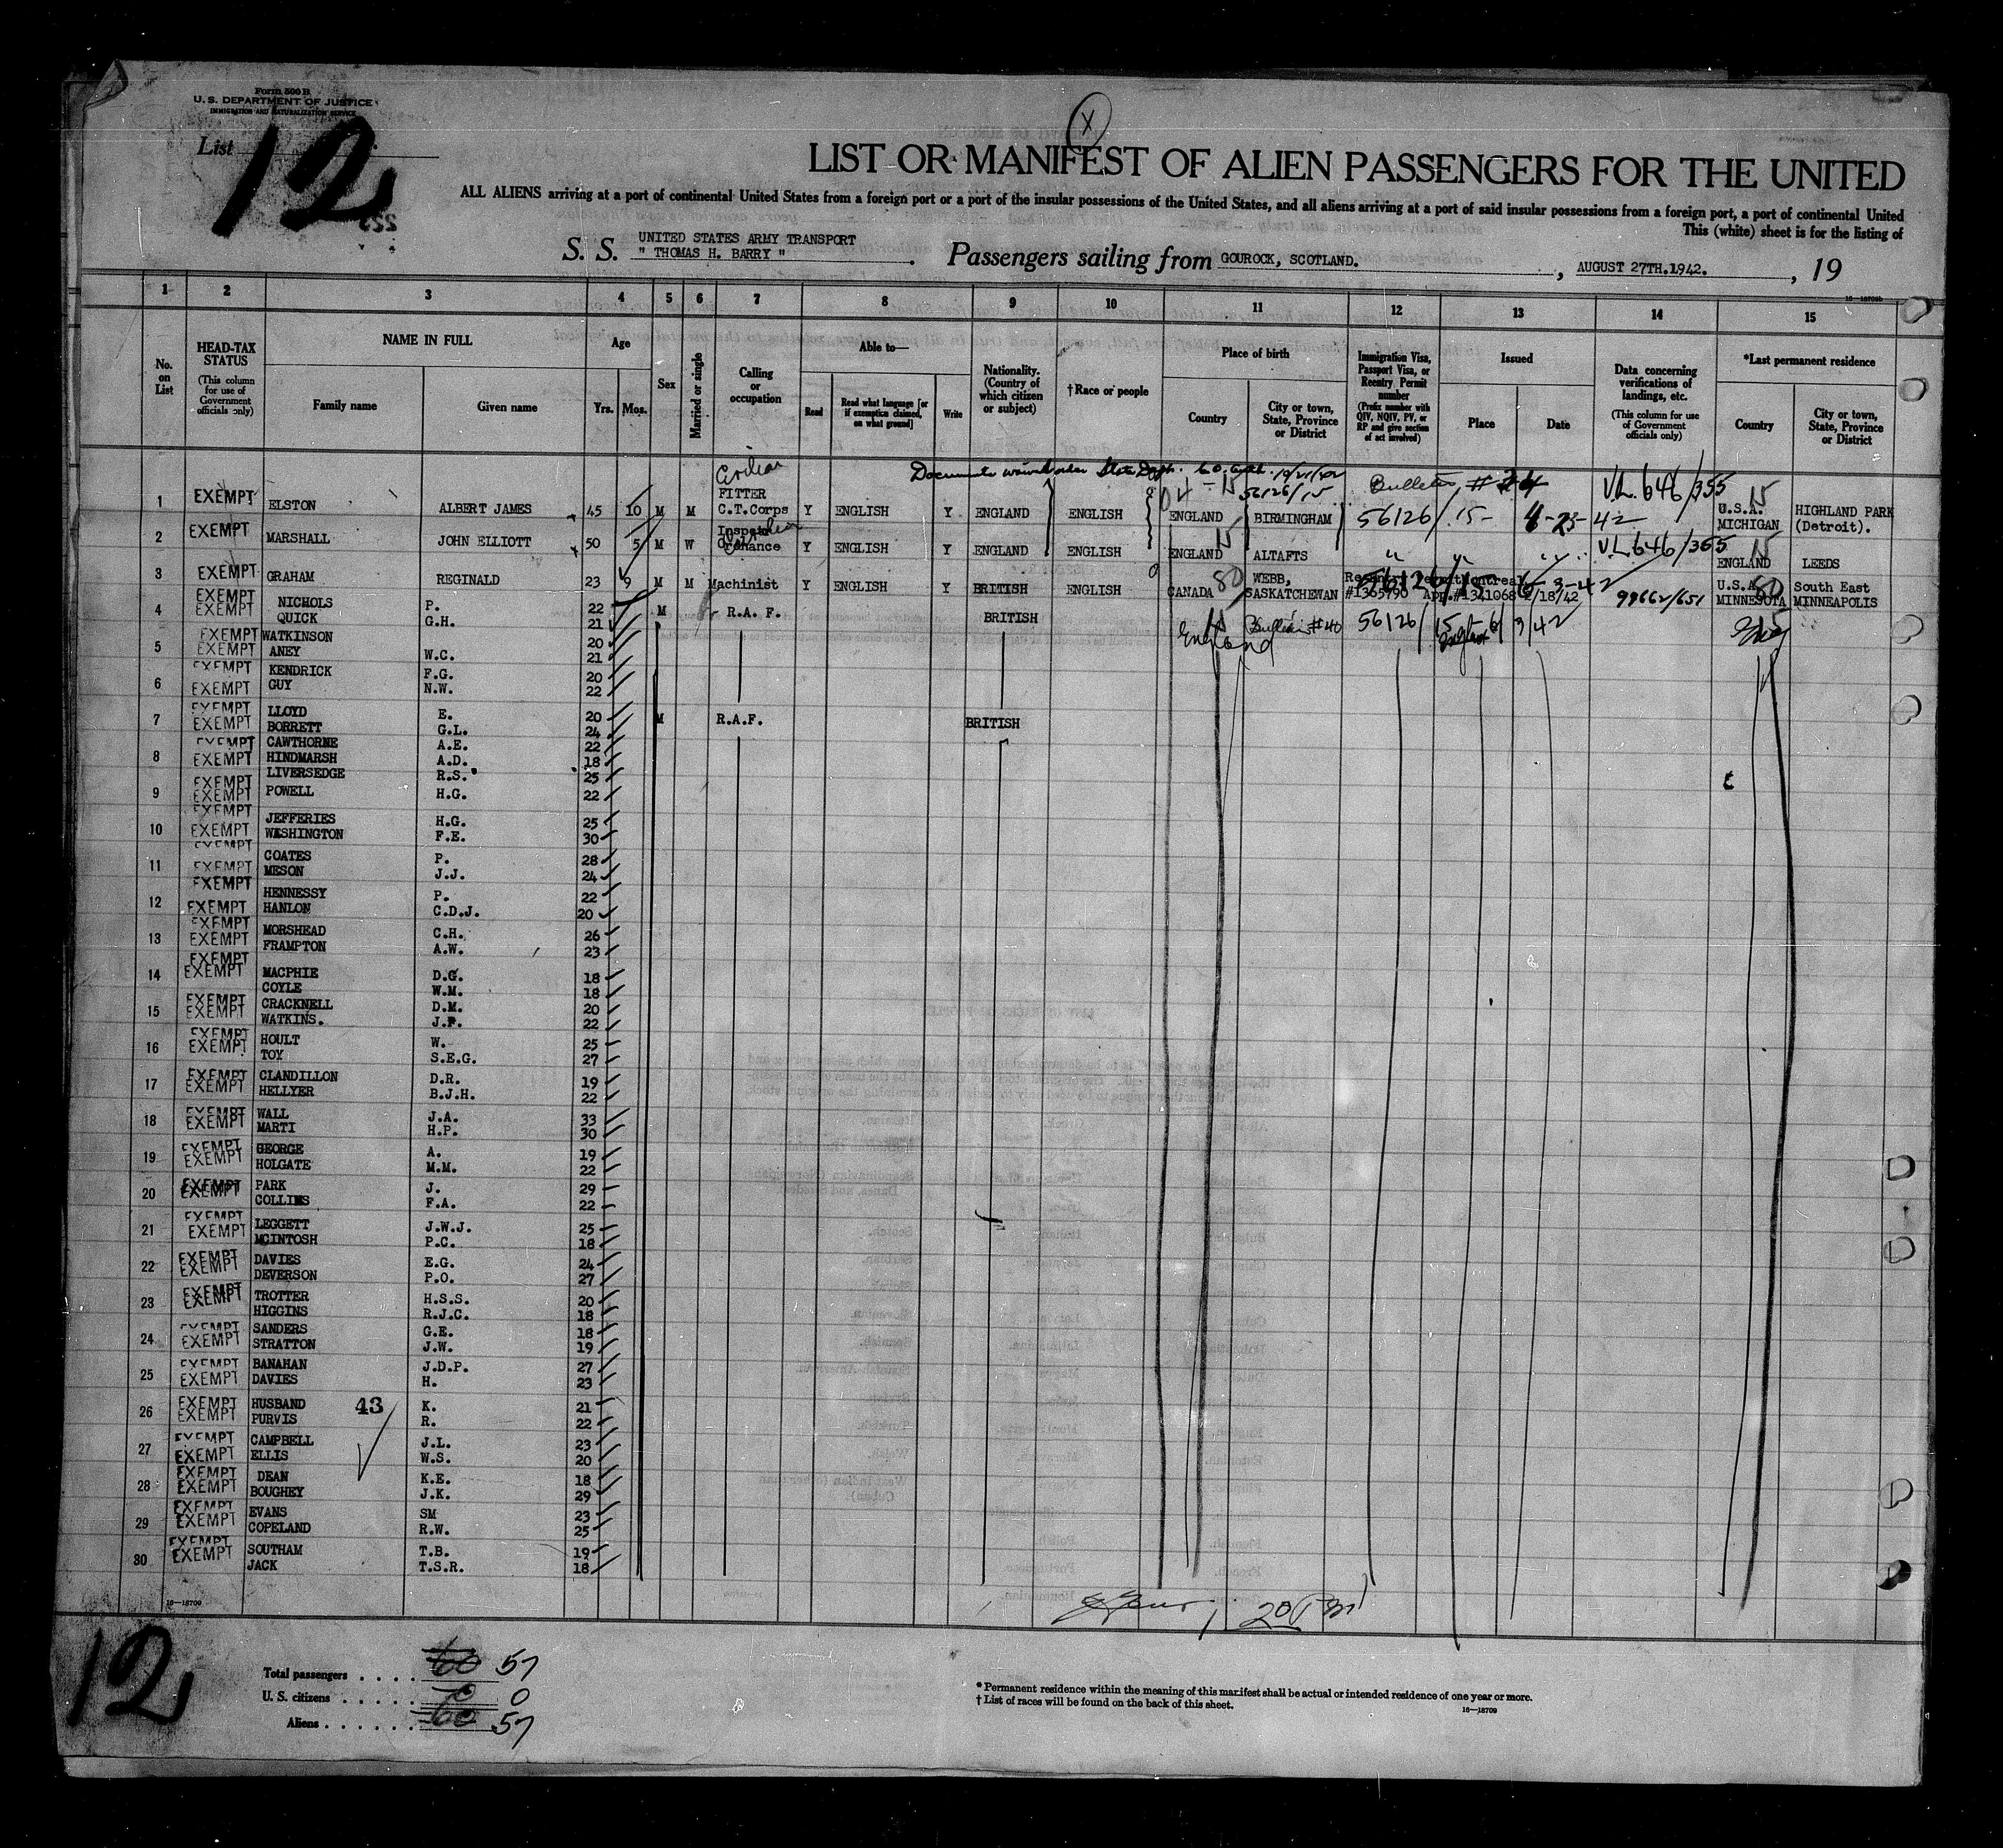 Form 500 B
U. S. DEPARTMENT OF JUSTICE
IMMIGRATION AND NATURALIZATION SERVICE
List 12
X
LIST OR MANIFEST OF ALIEN PASSENGERS FOR THE UNITED
ALL ALIENS arriving at a port of continental United States from a foreign port or a port of the insular possessions of the United States, and all aliens arriving at a port of said insular possessions from a foreign port, a port of continental United
This (white) sheet is for the listing of
S. S. UNITED STATES ARMY TRANSPORT " THOMAS H. BARRY " . Passengers sailing from GOUROCK, SCOTLAND. , AUGUST 27TH.1942. , 19
16—18709b
1 2 3 4 5 6 7 8 9 10 11 12 13 14 15
No. on List
HEAD-TAX STATUS (This column for use of Government officials only)
NAME IN FULL
Family name Given name
Age
Yrs. Mos.
Sex
Married or single
Calling or occupation
Able to—
Read Read what language [or if exemption claimed, on what ground] Write
Nationality. (Country of which citizen or subject)
†Race or people
Place of birth
Country City or town, State, Province or District
Immigration Visa, Passport Visa, or Reentry Permit number (Prefix number with QIV, NQIV, PV, or RP and give section of act involved)
Issued
Place Date
Data concerning verifications of landings, etc. (This column for use of Government officials only)
*Last permanent residence
Country City or town, State, Province or District
Civilian Documents waived State Dept. 10/21/42 56126/15 Bulletin #24 V.L. 646/355
1 EXEMPT ELSTON ALBERT JAMES 45 10 M M FITTER C.T.Corps Y ENGLISH Y ENGLAND ENGLISH ENGLAND BIRMINGHAM 56126/15- 4-23-42 15 U.S.A. MICHIGAN HIGHLAND PARK (Detroit).
2 EXEMPT MARSHALL JOHN ELLIOTT 50 5 M W Y ENGLISH Y ENGLAND ENGLISH ENGLAND 15 ALTAFTS " " " V.L. 646/355 ENGLAND 15 LEEDS
3 EXEMPT GRAHAM REGINALD 23 9 M M Machinist Y ENGLISH Y BRITISH ENGLISH CANADA 80 WEBB, SASKATCHEWAN #1365790 App.#1341068 99662/651 U.S.A. MINNESOTA 80 South East MINNEAPOLIS
4 EXEMPT NICHOLS P. 22 M R.A.F. BRITISH
EXEMPT QUICK G.H. 21 England 15 Bulletin #40 56126/15 6/3/42 Eng 15
EXEMPT WATKINSON 20
5 EXEMPT ANEY W.C. 21
EXEMPT KENDRICK F.G. 20
6 EXEMPT GUY N.W. 22
EXEMPT LLOYD E. 20 M R.A.F. BRITISH
7 EXEMPT BORRETT G.L. 24
EXEMPT CAWTHORNE A.E. 22
8 EXEMPT HINDMARSH A.D. 18
EXEMPT LIVERSEDGE R.S. 25
9 EXEMPT POWELL H.G. 22
EXEMPT JEFFERIES H.G. 25
10 EXEMPT WASHINGTON F.E. 30
EXEMPT COATES P. 28
11 EXEMPT MESON J.J. 24
EXEMPT HENNESSY P. 22
12 EXEMPT HANLON C.D.J. 20
EXEMPT MORSHEAD C.H. 26
13 EXEMPT FRAMPTON A.W. 23
EXEMPT MACPHIE D.G. 18
14 EXEMPT COYLE W.M. 18
EXEMPT CRACKNELL D.M. 20
15 EXEMPT WATKINS. J.P. 22
EXEMPT HOULT W. 25
16 EXEMPT TOY S.E.G. 27
EXEMPT CLANDILLON D.R. 19
17 EXEMPT HELLYER B.J.H. 22
EXEMPT WALL J.A. 33
18 EXEMPT MARTI H.P. 30
EXEMPT GEORGE A. 19
19 EXEMPT HOLGATE M.M. 22
EXEMPT PARK J. 29
20 EXEMPT COLLINS F.A. 22
EXEMPT LEGGETT J.W.J. 25
21 EXEMPT MCINTOSH P.C. 18
EXEMPT DAVIES E.G. 24
22 EXEMPT DEVERSON P.O. 27
EXEMPT TROTTER H.S.S. 20
23 EXEMPT HIGGINS R.J.C. 18
EXEMPT SANDERS G.E. 18
24 EXEMPT STRATTON J.W. 19
EXEMPT BANAHAN J.D.P. 27
25 EXEMPT DAVIES H. 23
EXEMPT HUSBAND 43 K. 21
26 EXEMPT PURVIS R. 22
EXEMPT CAMPBELL J.L. 23
27 EXEMPT ELLIS W.S. 20
EXEMPT DEAN K.E. 18
28 EXEMPT BOUGHEY J.K. 29
EXEMPT EVANS SM 23
29 EXEMPT COPELAND R.W. 25
EXEMPT SOUTHAM T.B. 19
30 EXEMPT JACK T.S.R. 18
16—18709
12
Total passengers . . . . 60 57
U. S. citizens . . . . . 0
Aliens . . . . . . 60 57
* Permanent residence within the meaning of this manifest shall be actual or intended residence of one year or more.
† List of races will be found on the back of this sheet.
16—18709